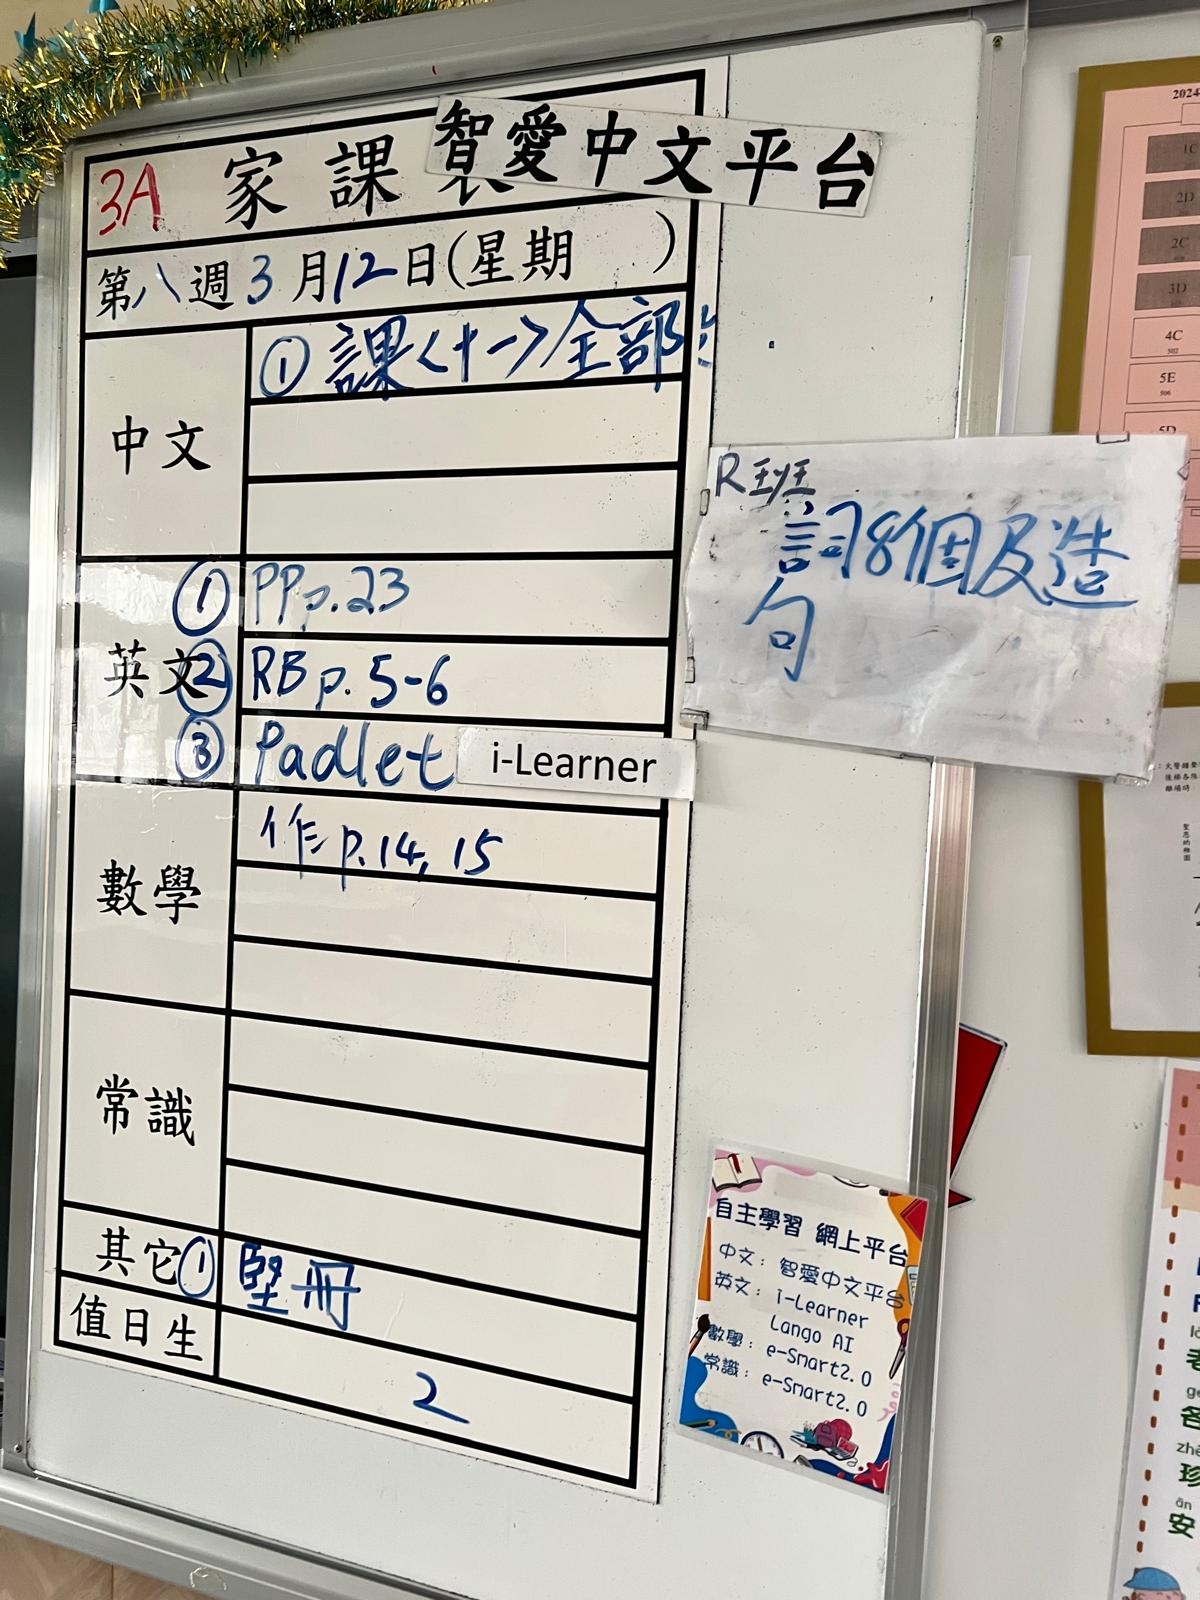 智愛中文平台
3A 家課
第八週3月12日(星期 )
中文
① 課<十一>全部
R班
詞8個及造
句
英文
① PP p.23
② RB p.5-6
③ Padlet i-Learner
數學
作 p.14, 15
常識
其它 ① 堅冊
值日生
2
自主學習 網上平台
中文：智愛中文平台
英文：i-Learner
Lango AI
數學：e-Smart2.0
常識：e-Smart2.0
2024
1C
2D
2C
3D
4C
502
5E
506
5D
火警鐘
後梯各
離場時
珍
安